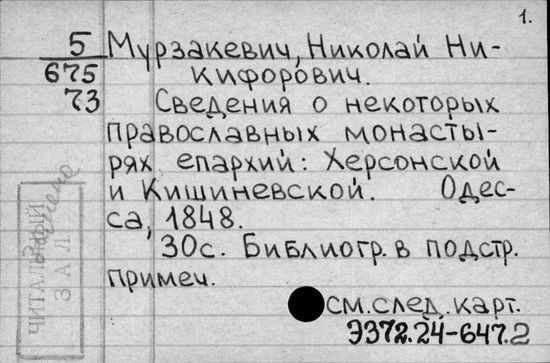 1.
5 Мурзакевич, Николай Ни-
675 кифорович.
73 Сведения о некоторых
православных монасты-
рях епархий: Херсонской
и Кишиневской. Одес-
са, 1848.
30с. Библиогр. в подстр.
примеч.
см. след. карт.
Э372.24-647.2
ЧИТАЛЬНЫЙ
ЗАЛ